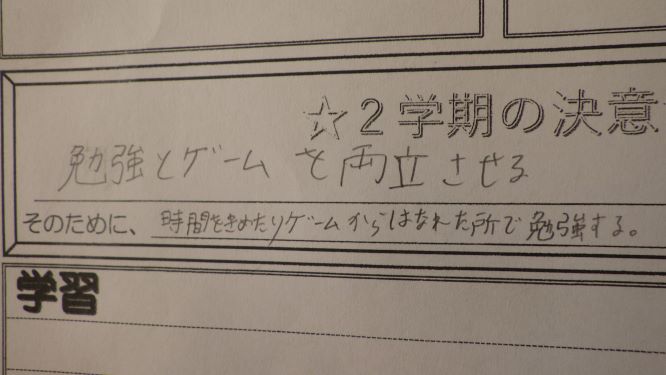 ☆2学期の決意
勉強とゲームを両立させる
そのために、時間をきめたりゲームからはなれた所で勉強する。
学習